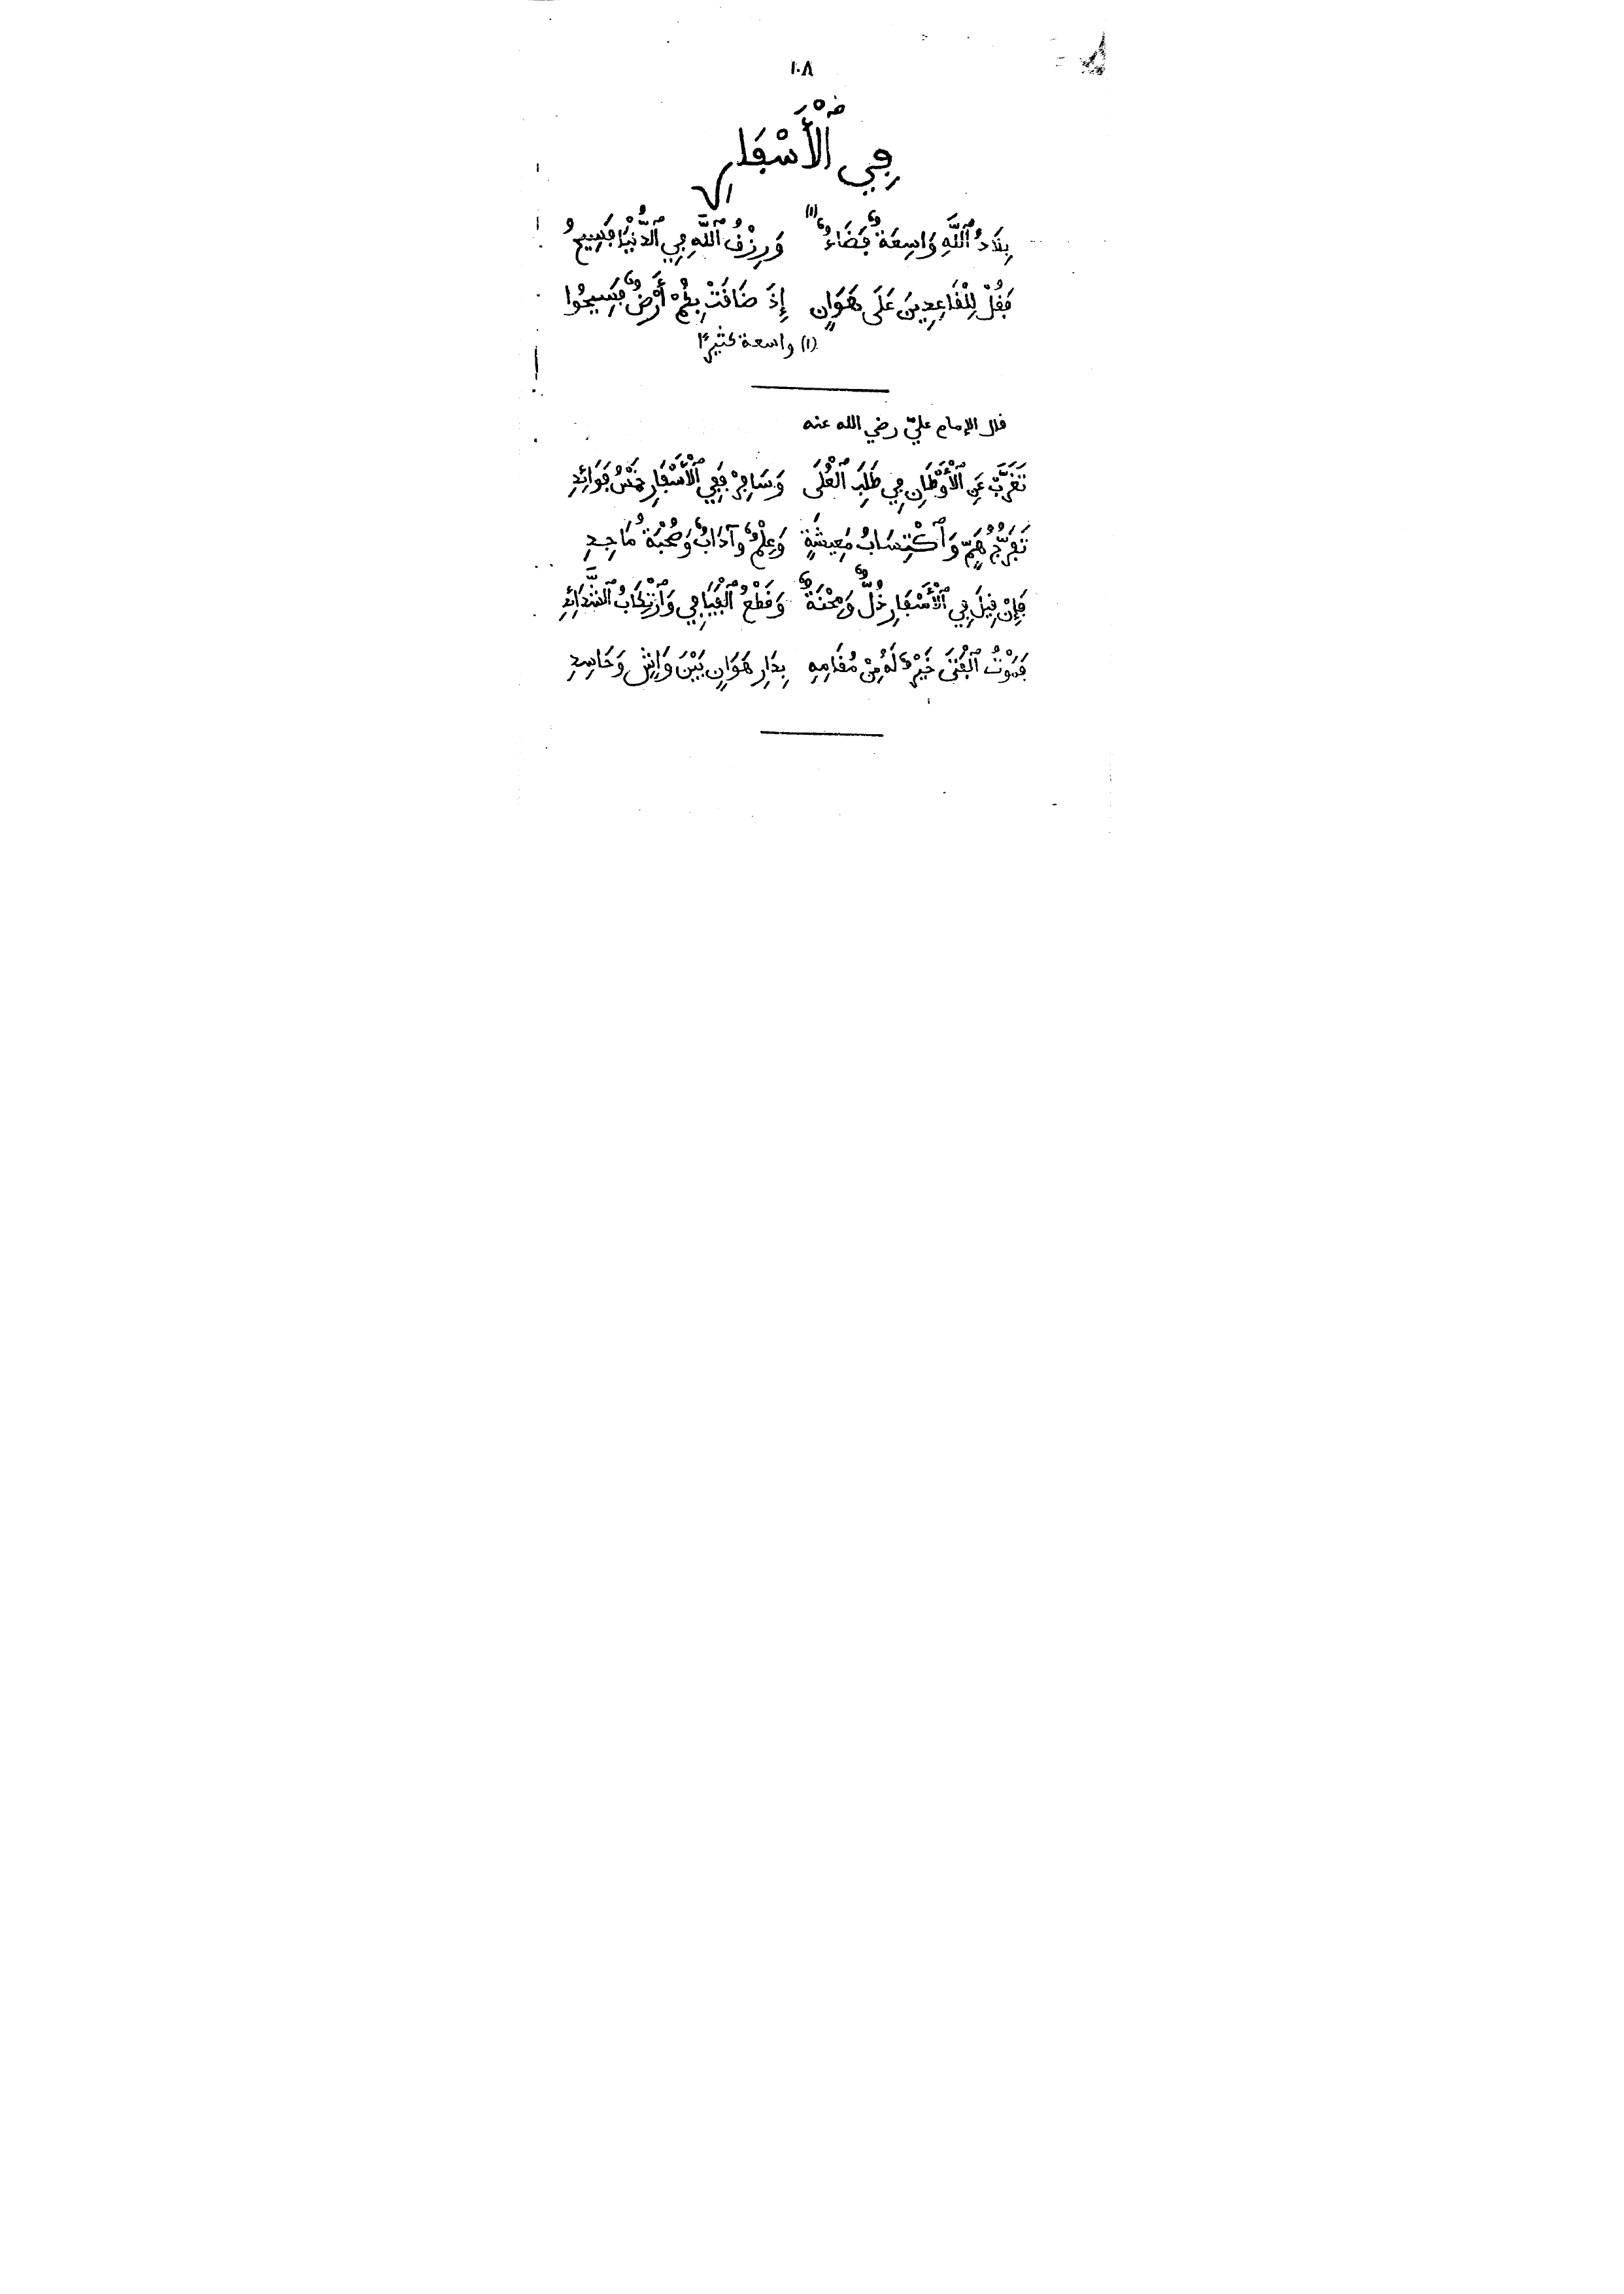 ١٠٨
فِي ٱلْأَسْفَارِ
بِلَادُ ٱللَّهِ وَاسِعَةٌ فَضَاءٌ (١) وَرِزْقُ ٱللَّهِ فِي ٱلدُّنْيَا فَسِيحُ
فَقُلْ لِلْقَاعِدِينَ عَلَى هَوَانٍ إِذَ ضَاقَتْ بِكُمْ أَرْضٌ فَسِيحُوا
(١) واسعة كثيرًا
قال الإمام عليّ رضي الله عنه
تَغَرَّبْ عَنِ ٱلْأَوْطَانِ فِي طَلَبِ ٱلْعُلَى وَسَافِرْ فَفِي ٱلْأَسْفَارِ خَمْسُ فَوَائِدِ
تَفَرُّجُ هَمٍّ وَٱكْتِسَابُ مَعِيشَةٍ وَعِلْمٌ وآدَابٌ وَصُحْبَةُ مَاجِدِ
فَإِنْ قِيلَ فِي ٱلْأَسْفَارِ ذُلٌّ وَمِحْنَةٌ وَقَطْعُ ٱلْفَيَافِي وَٱرْتِكَابُ ٱلشَّدَائِدِ
فَمَوْتُ ٱلْفَتَى خَيْرٌ لَهُ مِنْ مُقَامِهِ بِدَارِ هَوَانٍ بَيْنَ وَاشٍ وَحَاسِدِ